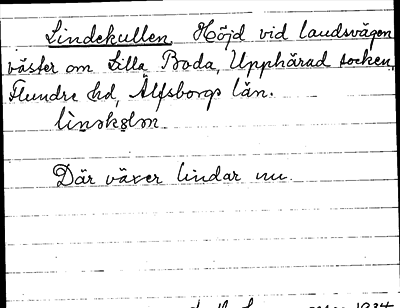 Lindekullen. Höjd vid landsvägen
väster om Lilla Boda, Upphärad socken,
Flundre hd, Älfsborgs län.
Där växer lindar nu.
1934